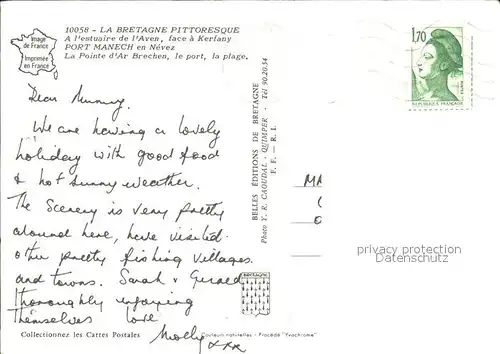 Image
de France
Imprimée
en France
10058 - LA BRETAGNE PITTORESQUE
A l'estuaire de l'Aven, face à Kerfany
PORT MANECH en Névez
La Pointe d'Ar Brechen, le port, la plage.
1,70
REPUBLIQUE FRANÇAISE
Dear Mummy,
We are having a lovely
holiday with good food
& hot sunny weather.
The Scenery is very pretty
around here, have visited
other pretty fishing villages
and towns. Sarah & Gerald
thoroughly enjoying
themselves love
Molly xxx
BELLES ÉDITIONS DE BRETAGNE
Photo Y. R. CAOUDAL - QUIMPER - Tél 90.20.54
F. F. - R. I.
MA
privacy protection
Datenschutz
BRETAGNE
Collectionnez les Cartes Postales
Couleurs naturelles - Procédé "Yvochrome"